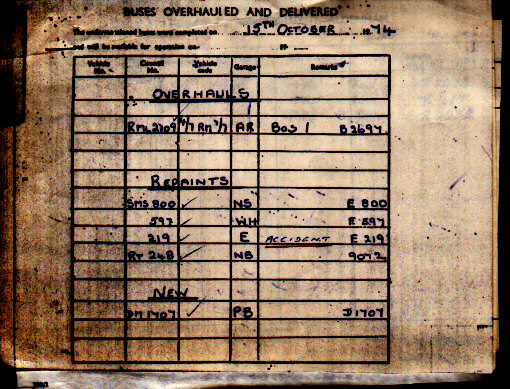 BUSES OVERHAULED AND DELIVERED
The undermentioned buses were completed on 15TH OCTOBER 1974
and will be available for operation on 19
Vehicle No. Council No. Vehicle code Garage Remarks
OVERHAULS
RML 2709 7 RM 3/7 AR BOS 1 B2697
REPAINTS
SMS 800 ✓ NS E 800
597 ✓ WH E 597
219 ✓ E ACCIDENT E 219
RT 248 ✓ NB 9072
NEW
DM 1707 ✓ PB D1707